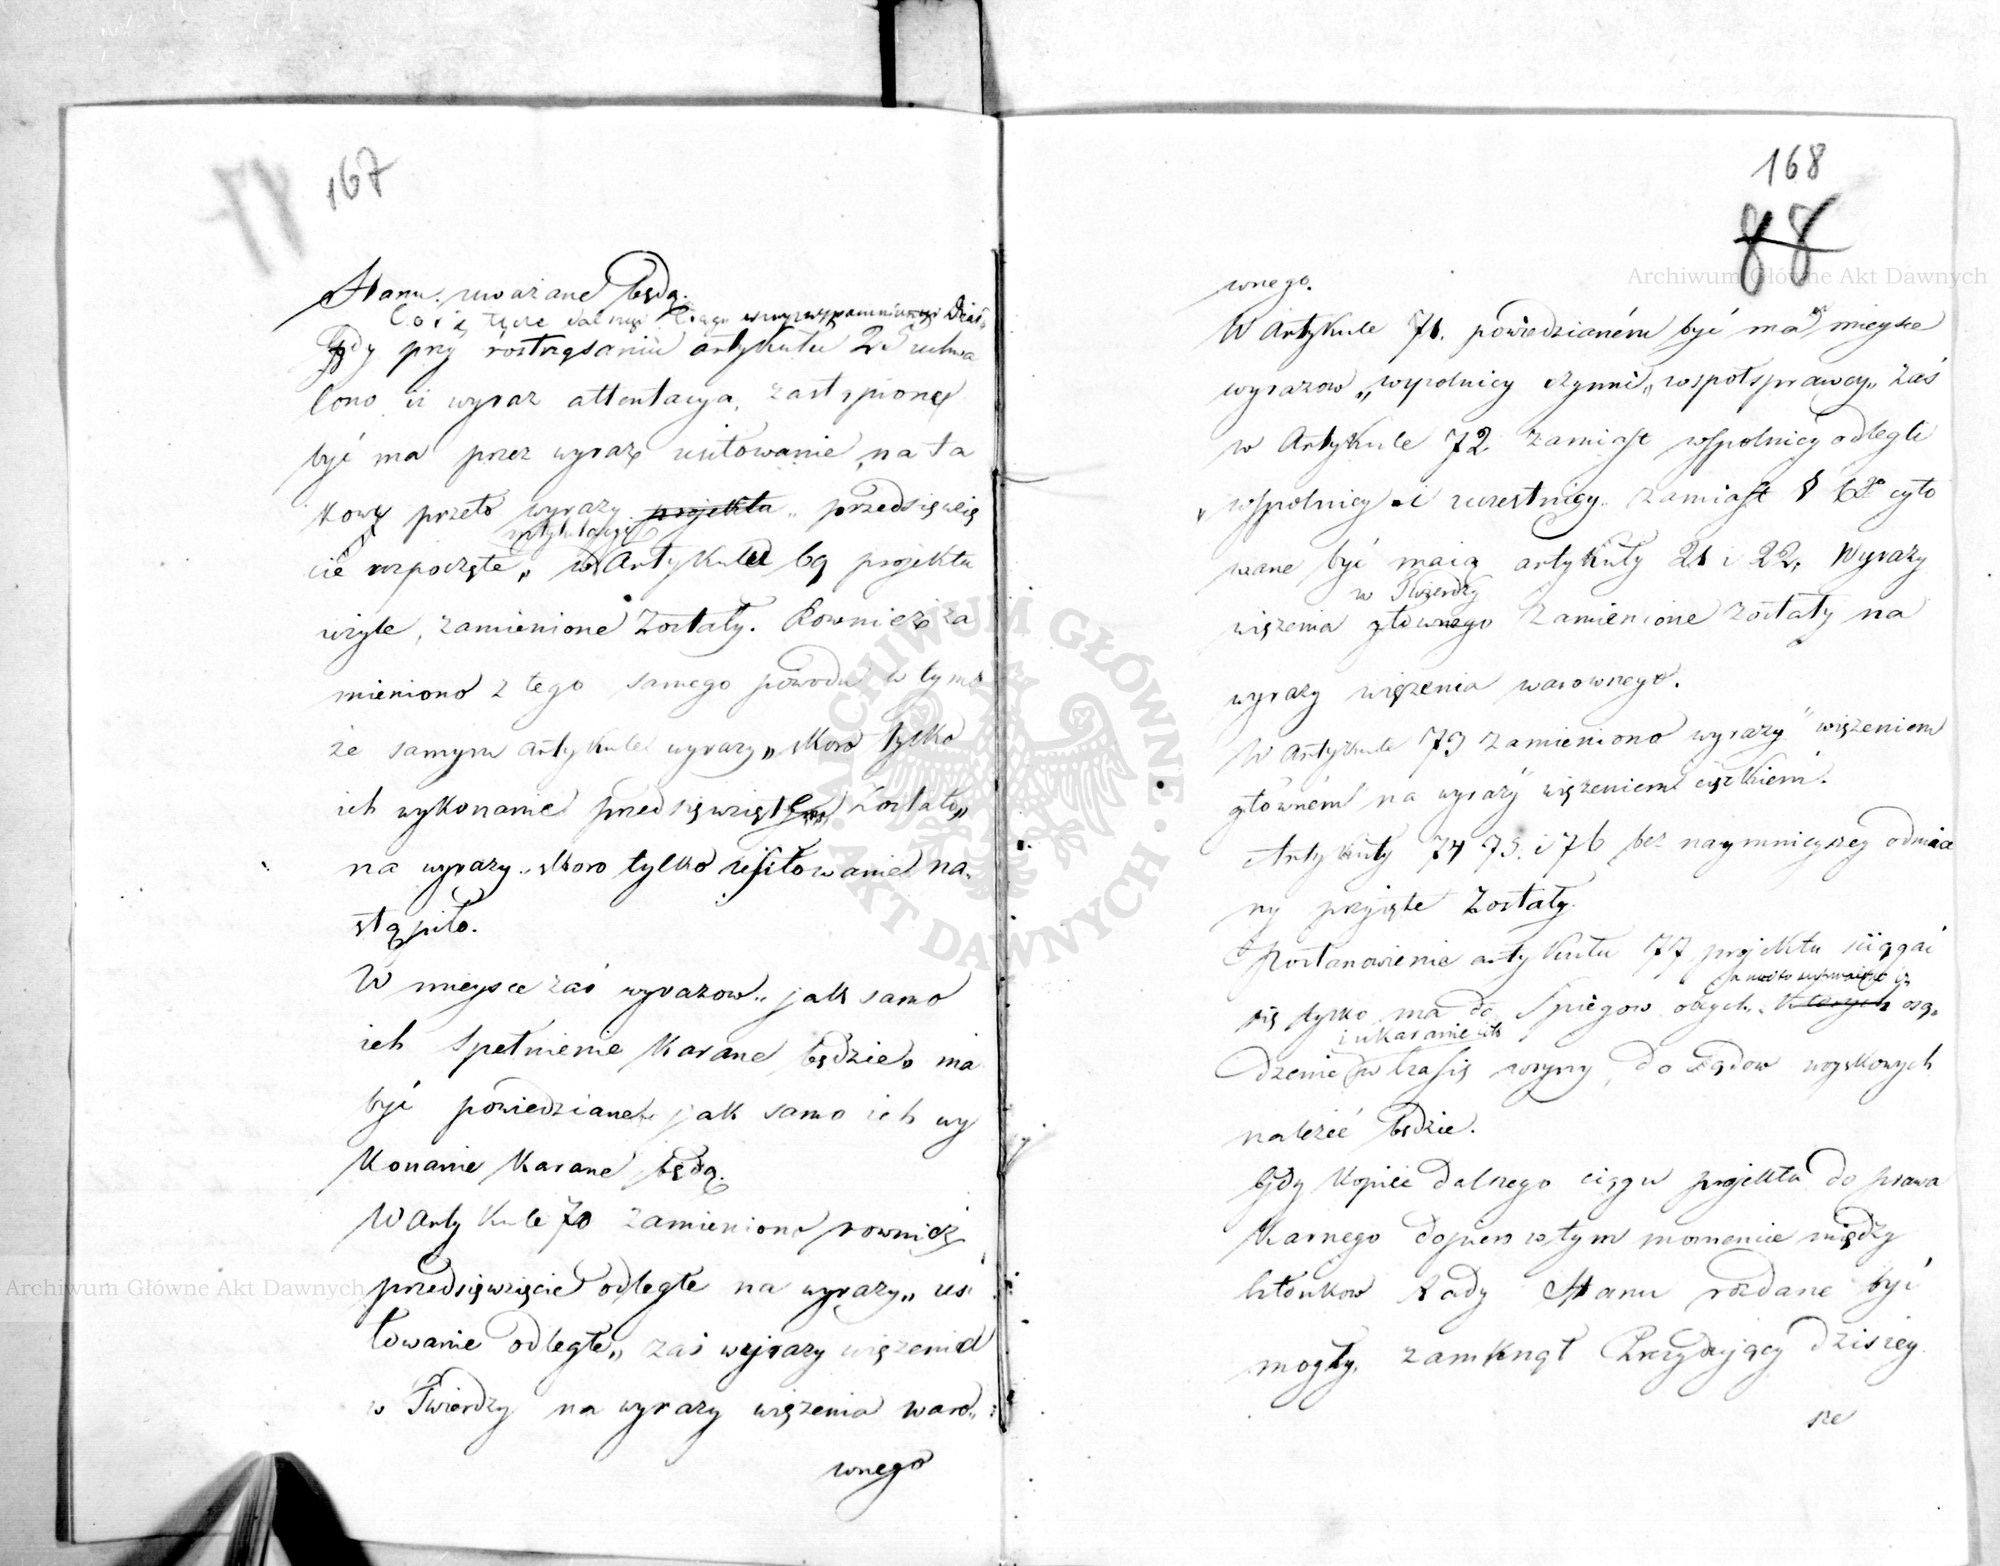 78 167
Stanu uważane będą.
Co się tycze dalszego ciągu wyżwspomnionego Dzia„
Gdy przy rostrząsaniu artykułu 2 uchwa
lono iż wyraz attentacya, zastąpiony
być ma przez wyraz usiłowanie, na ta
kowy przeto wyrazy projektu „ przedsięwzię
cie rozpoczęte„ w Artykule 69 projektu
użyte, zamienione zostały. Rownież za
mieniono z tego samego powodu w tym
że samym artykule wyrazy „ skoro tylko
ich wykonanie przedsięwzięte zostało„
na wyrazy „ skoro tylko usiłowanie na„
stąpiło.
W mieysce zaś wyrazow „ jak samo
ich spełnienie karane będzie„ ma
być powiedziane „ jak samo ich wy
konanie karane będą.
W artykule 70 zamieniono rownież
przedsięwzięcie odległe na wyrazy „ usi
łowanie odległe„ zaś wyrazy więzienie
w Twierdzy na wyrazy więzienia waro„
wnego
168
88
wnego.
W Artykule 71. powiedzianém być ma w mieysce
wyrazow „ wspolnicy czynni „ wspołsprawcy„ Zaś
w Artykule 72 zamiast wspolnicy odlegli
„ wspolnicy i uczestnicy„ zamiast § 62 cyto
wane być maią artykuły 21 i 22, Wyrazy
w Twierdzy
więzienia głownego zamienione zostały na
wyrazy więzienia warownego.
W Artykule 73 zamieniono wyrazy "więzieniem
głownem" na wyrazy "więzieniem ciężkiem".
Artykuły 74 75. i 76 bez naymnieyszey odmia
ny przyięte zostały.
Postanowienie artykułu 77 projektu ściągać
się tylko ma do Szpiegow obcych, których osą„
i ukaranie ich
dzenie w czasie woyny, do Sądow woyskowych
należeć będzie.
Gdy kopiie dalszego ciągu projektu do prawa
Karnego dopiero w tym momencie między
Członkow Rady Stanu rozdane być
mogły, zamknął Prezydujący dzisiey„
sze
Archiwum Główne Akt Dawnych
Archiwum Główne Akt Dawnych
ARCHIWUM GŁÓWNE · AKT DAWNYCH ·